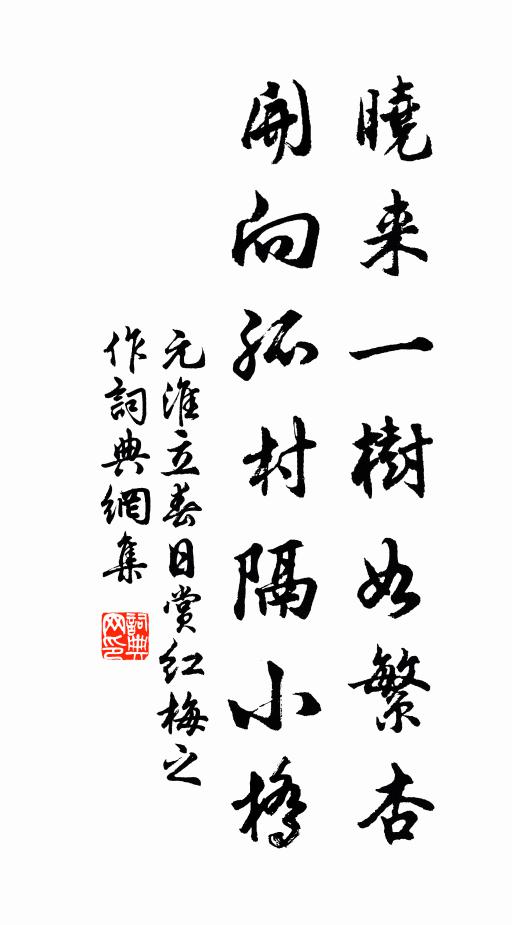 曉来一樹如繁杏
開向孤村隔小橋
元淮立春日賞紅梅之
作詞典網集
詞典
网印